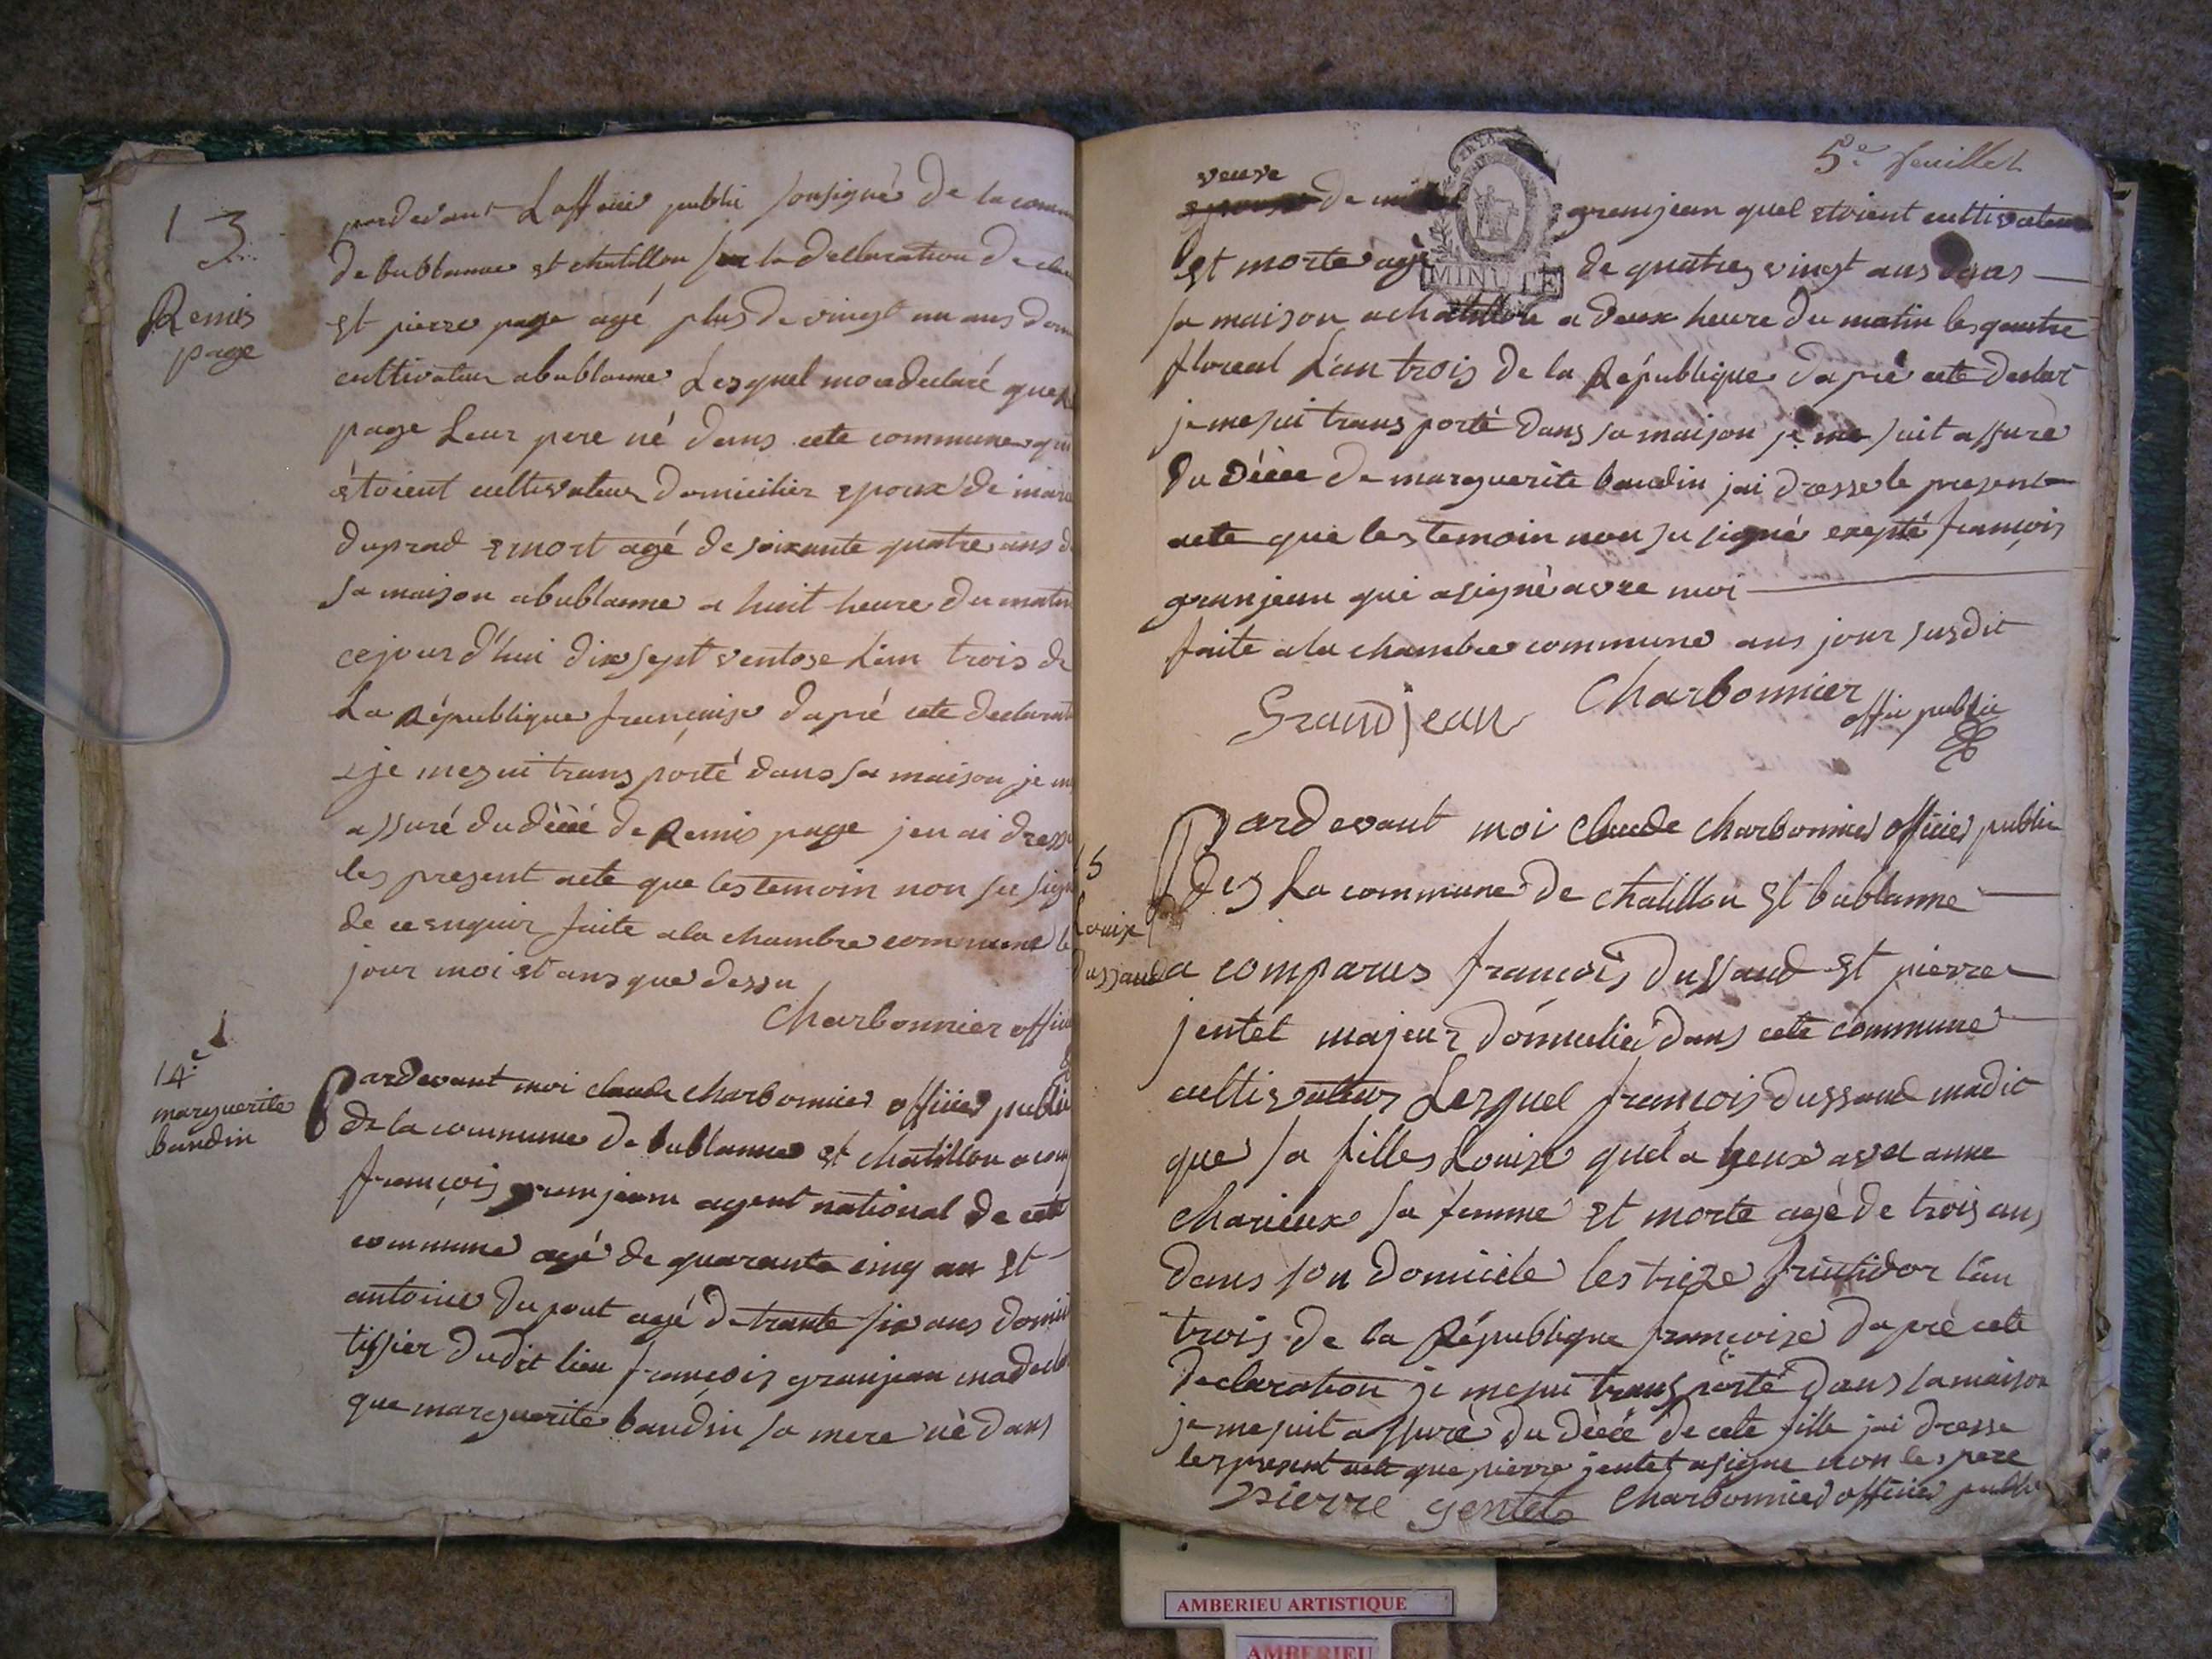 13
Remis
page
pardevant Laffsier public sousigné De la comm
De bublanne et chatillon sur la Dellaration De clau
et pierre page agé plus De vingt un ans Dom
cultivateur a bublanne Lesquel mon declaré que
page Leur pere né Dans cete commune qui
étoient cultivateur Domicilier epoux De marie
duprad e mort agé De soixante quatre ans d
sa maison a bublanne a huit heure Du matin
ce jour d'hui Dix sept ventose L'an trois de
La République françaisse Dapré cete Declarat
je me sui trans porté Dans sa maison je m
assuré Du Décé De Remis page jen ai Dressé
les present acte que les temoin non su sign
de ce enquir faite a la chambre commune le
jour moi et ans que Dessu
Charbonnier offici
14.e
marguerite
baudin
Pardevant moi claude charbonnier officier public
De la commune De bublanne et chatillon a com
françois granjean agent national De cete
commune agé de quarante cinq an et
antoine Du pont agé De trante six ans Domici
tissier Dudit lieu françois granjean ma declar
que marguerite baudin sa mere né Dans
5.e feuillet
veuve
De granjean quel etoient cultivateur
est morte agé De quatre vingt ans Dans
sa maison a chatillon a Deux heure Du matin les quatre
floreal L'an trois De la République Dapré cete Declar
je me sui trans porté Dans sa maison je me suit assuré
Du Décé De marguerite baudin jai Dresse le present
acte que les temoin non su signé exepté françois
granjean qui a signé avec moi
faite a la chambre commune ans jour susdit
Grandjean Charbonnier
offi public
MINUTE
15
Louise
Dussaud
Pardevant moi claude charbonnier officier public
Des La commune De chatillon et bublanne
a comparus francois Dussaud et pierre
jentet majeur Domicilié Dans cete commune
cultivateur Lesquel francois Dussaud ma dit
que sa filles Louise quel a heux avec anne
charieux sa femme et morte agé De trois ans
Dans son Domicile les treize fructidor l'an
trois De la République françoise Dapré cete
Declaration je me sui trans porté Dans sa maison
je me suit assuré Du Décé De cete fille jai Dresse
les present acte que pierre jentet a signe non les pere
pierre gentet Charbonnier officier public
AMBERIEU ARTISTIQUE
AMBERIEU